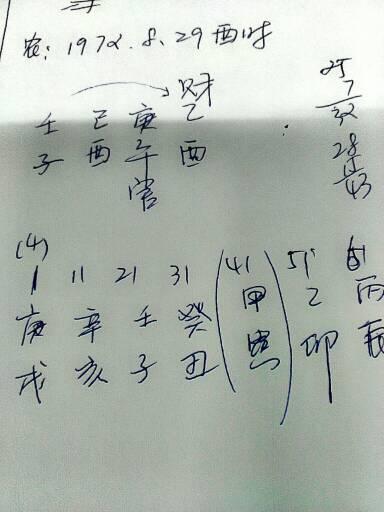 农: 1972.8.29 酉时
财
壬 己 庚 乙
子 酉 午 酉
官
25
7
32
28
15
43
(4)
1 11 21 31 (41) 51 61
庚 辛 壬 癸 甲 乙 丙
戌 亥 子 丑 寅 卯